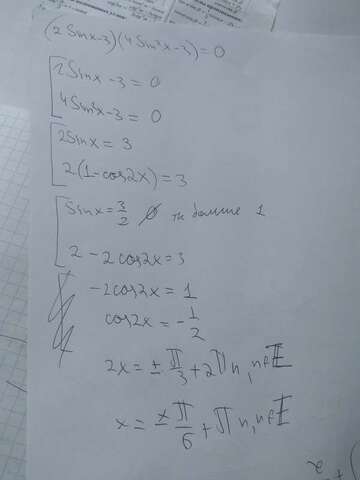 (2Sinx-3)(4Sin²x-3)=0
2Sinx-3=0
4Sin²x-3=0
2Sinx=3
2(1-cos2x)=3
Sinx=3/2 ∅ тк больше 1
2-2cos2x=3
-2cos2x=1
cos2x=-1/2
2x=±π/3+2πn, n∈Z
x=±π/6+πn, n∈Z